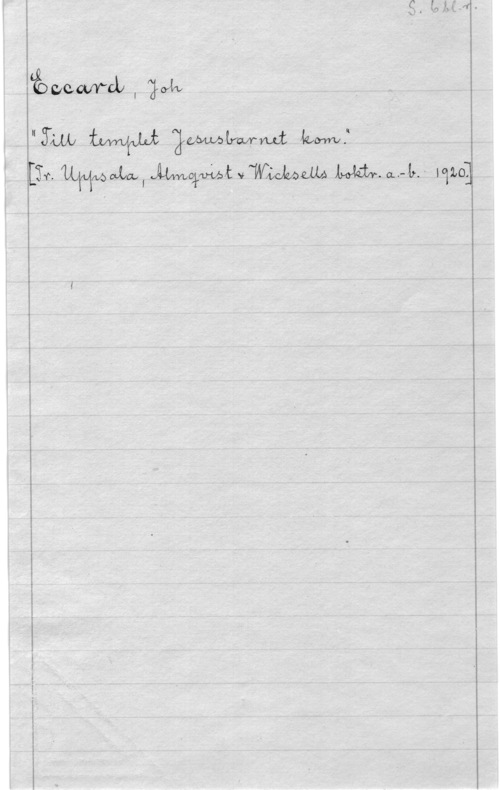 S. bbl. r.
Eccard, Joh
"Till templet Jesusbarnet kom."
[Tr. Uppsala, Almqvist & Wicksells boktr. a.-b. 1920.]